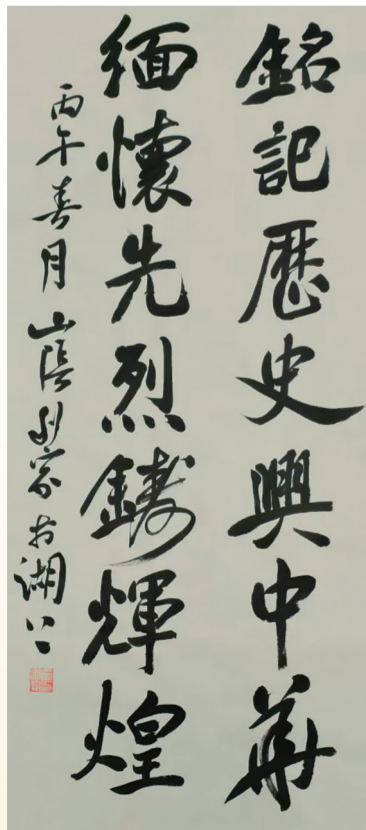 銘記歷史興中華
緬懷先烈鑄輝煌
丙午春月山陰
於湖上